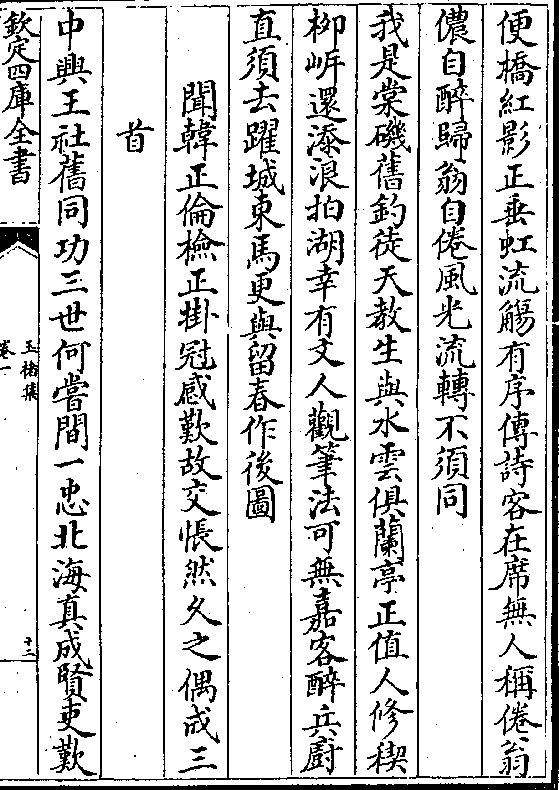 便橋紅影正垂虹流觴有序傳詩客在席無人稱倦翁
儂自醉歸翁自倦風光流轉不須同
我是棠磯舊釣徒天教生與水雲俱蘭亭正值人修稧
柳㟁還添浪拍湖幸有文人觀筆法可無嘉客醉兵厨
直須去躍城東馬更與留春作後圖
聞韓正倫檢正掛冠感歎故交悵然久之偶成三
首
中興王社舊同功三世何嘗間一忠北海真成賢吏歎
欽定四庫全書
玉楮集
卷一
十二